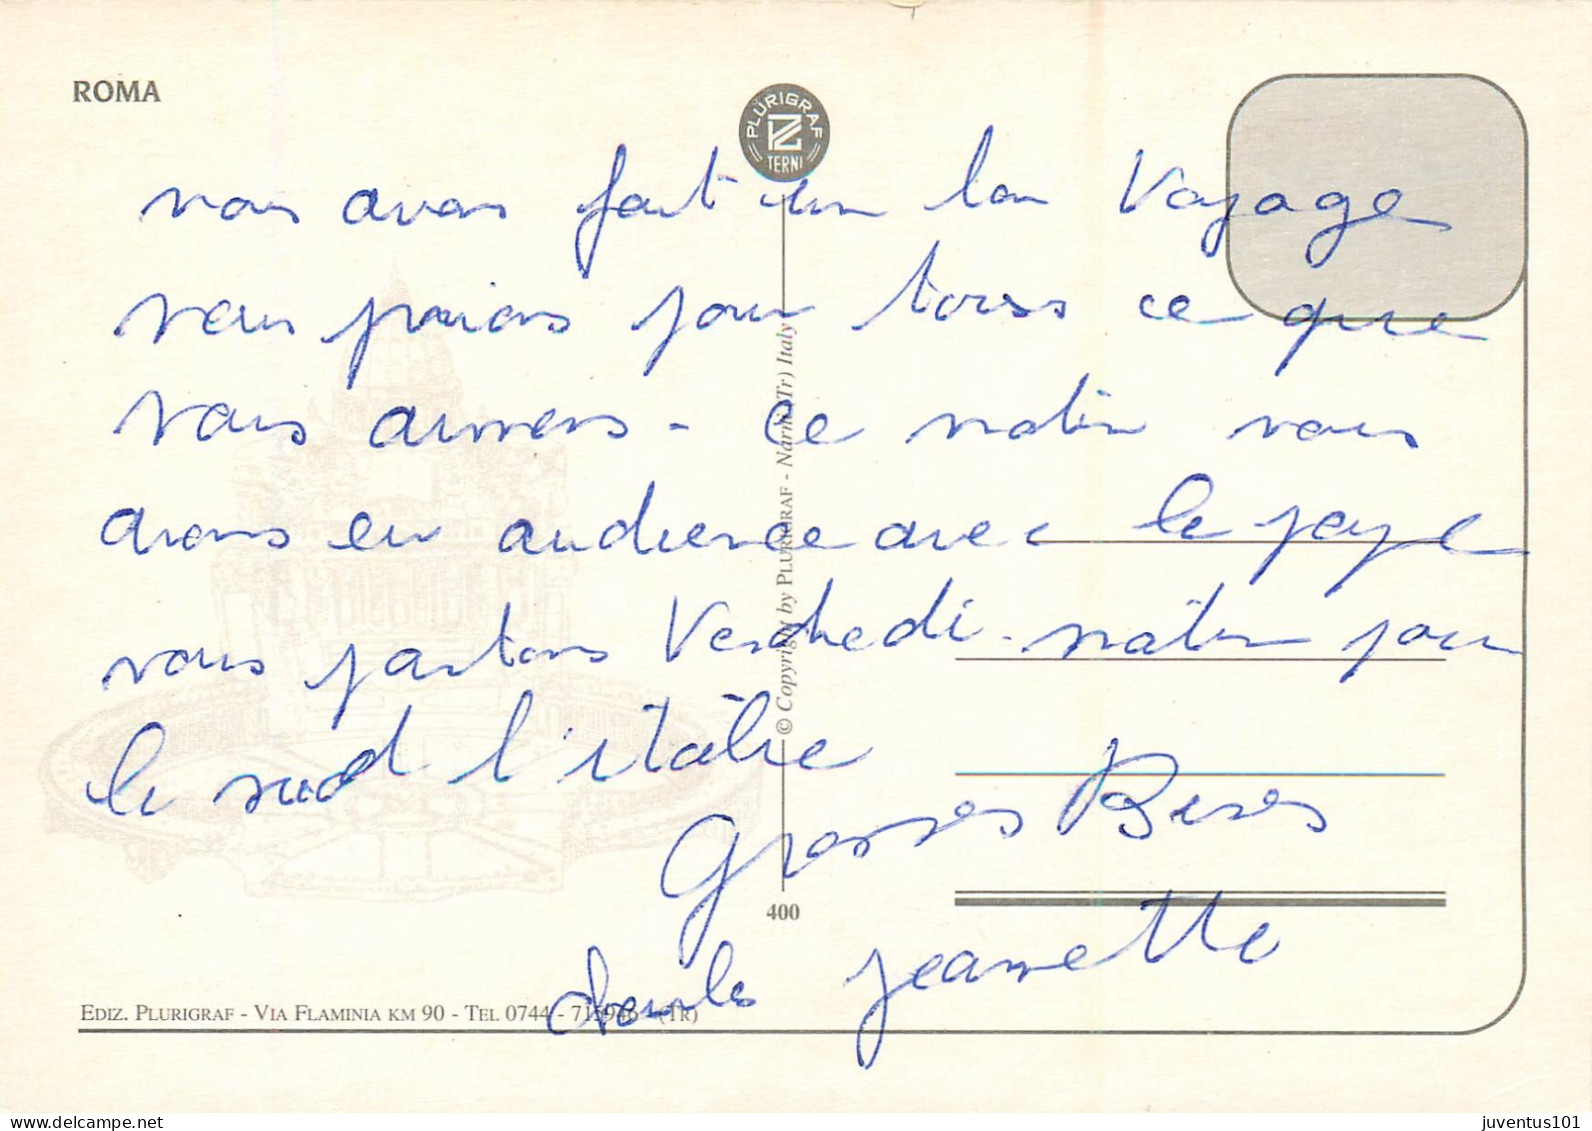 ROMA
PLURIGRAF
TERNI
nous avons fait un bon Voyage
nous prions pour tous ce que
nous aimons - ce matin nous
avons eu audience avec le pape
nous partons Vendredi matin pour
le sud l'italie
Grosses Bises
charles Jeannette
© Copyright by PLURIGRAF - Narni (Tr) Italy
400
EDIZ. PLURIGRAF - VIA FLAMINIA KM 90 - TEL 0744 - 715946 - (TR)
delcampe.net
juventus101